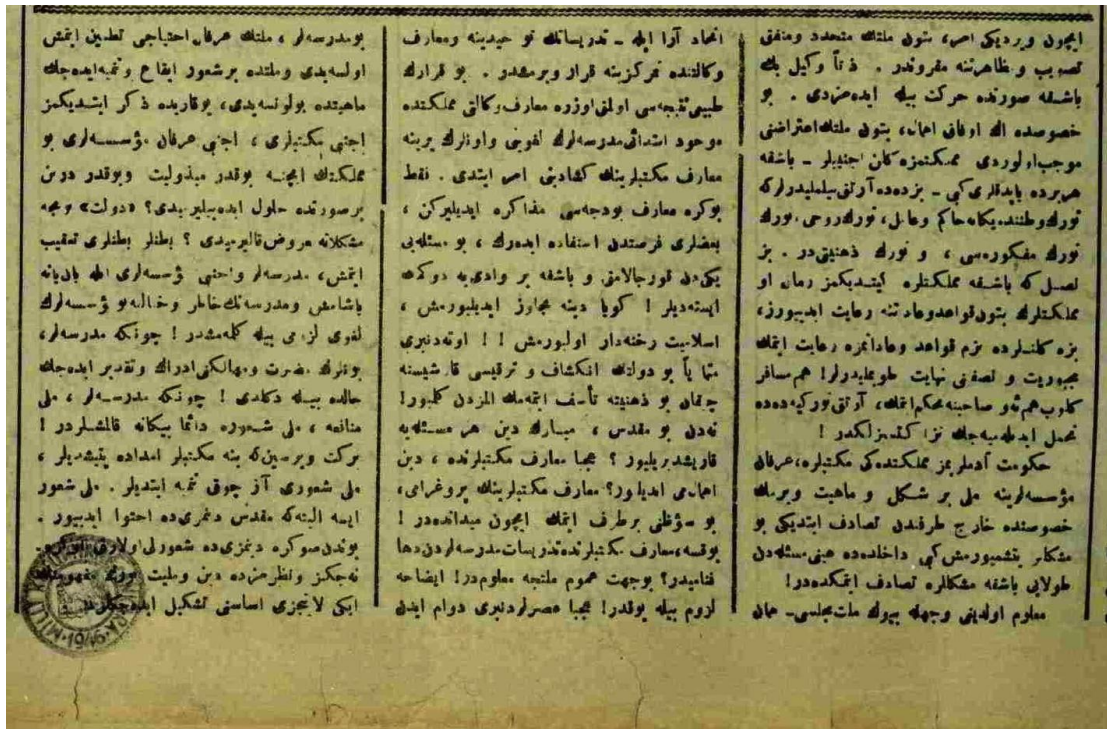 ایچون ویردیکی امر، بتون ملتك متحد ومتفق
تصویب و ظاهرتنه مقروندر . ذاتاً وکیل بك
باشقه صورتده حرکت بیله ایده‌مزدی . بو
خصوصده اك اوفاق اهمال، بتون ملتك اعتراضنی
موجب اولوردی مملکتمزه کلن اجنبیلر ـ باشقه
هر یرده یاپدقلری کبی ـ بزده‌ده آرتق بیلملیدرلر که
تورك وطننده یکانه حاکم وعامل، تورك روحی، تورك
تورك مفکوره‌سی ، و تورك ذهنیتی در . بز
نصل که باشقه مملکتلره کیتدیکمز زمان او
مملکتلرك بتون قواعد وعاداتنه رعایت ایدییورز،
بزه کلنلرده بزم قواعد وعاداتمزه رعایت ایتمك
مجبوریت و نصفنی نهایت طویملیدرلر! هم مسافر
کلوب هم ئه‌و صاحبنه تحکم ایتمك، آرتق تورکیه‌ده‌ده
تحمل ایدیله‌میه‌جك نزاکتسزلکدر !
حکومت آدملریمز مملکتده‌کی مکتبلره، عرفان
مؤسسه‌لرینه ملی بر شکل و ماهیت ویرمك
خصوصنده خارج طرفندن تصادف ایتدیکی بو
مشکلر یتشمیورمش کبی داخلده‌ده عینی مسئله‌دن
طولایی باشقه مشکللره تصادف ایتمکده‌در!
معلوم اولدیغی وجهله بیوك ملت مجلسی ـ همان
اتحاد آرا ایله ـ تدریساتك تو حیدینه ومعارف
وکالتنده تمرکزینه قرار ویرمشدر . بو قرارك
طبیعی نتیجه‌سی اولمق اوزره معارف وکالتی مملکتده
موجود ابتدائی مدرسه‌لرك لغوینی واونلرك یرینه
معارف مکتبلرینك کشادینی امر ایتدی . فقط
بوکره معارف بودجه‌سی مذاکره ایدیلیرکن ،
بعضلری فرصتدن استفاده ایده‌رك ، بو مسئله‌یی
یکی‌دن قورجالامق و باشقه بر وادی‌یه دوکمك
ایسته‌دیلر ! کویا دینه تجاوز ایدیلیورمش ،
اسلامیت رخنه‌دار اولیورمش ! ! اوته‌دنبری
بو دولتك انکشاف و ترقیسی قارشیسنه
چیقان بو ذهنیته تأسف ایتمه‌مك المزدن کلمیور!
نه‌دن بو مقدس ، مبارك دین هر مسئله‌یه
قاریشدیریلیور ؟ عجبا معارف مکتبلرنده ، دین
اهمال‌می ایدیلیور؟ معارف مکتبلرینك پروغرامی،
بو سؤظنی برطرف ایتمك ایچون میدانده‌در !
یوقسه، معارف مکتبلرنده تدریسات مدرسه‌لردن دها
فنامیدر؟ بوجهت عموم ملتجه معلوم‌در! ایضاحه
لزوم بیله یوقدر! عجبا عصرلردنبری دوام ایدن
بومدرسه‌لر ، ملتك عرفان احتیاجی تطمین ایتمش
اولسه‌یدی وملتده بر شعور ایقاع وتنمیه ایده‌جك
ماهیتده بولونسه‌یدی، یوقاریده ذکر ایتدیکمز
اجنبی مکتبلری ، اجنبی عرفان مؤسسه‌لری بو
مملکتك ایچنه بوقدر مبذولیت وبوقدر درین
برصورتده حلول ایده‌بیلیرمیدی؟ «دولت» ویجه
مشکلاته معروض قالیرمیدی ؟ بطنلر بطنلری تعقیب
ایتمش، مدرسه‌لر واجنبی مؤسسه‌لری ایله یان‌یانه
یاشامش ومدرسه‌نك خاطر وخیالنه بو مؤسسه‌لرك
لغوی لزومی بیله کلمه‌مشدر ! چونکه مدرسه‌لر،
بونلرك مضرت ومهالکنی ادراك وتقدیر ایده‌جك
حالده بیله دکلدی ! چونکه مدرسه‌لر ، ملی
منافعه ، ملی شعوره دائما بیکانه قالمشلردر !
برکت ویرسین که ینه مکتبلر امداده یتیشدیلر ،
ملی شعوری آز چوق تنمیه ایتدیلر . ملی شعور
ایسه البته‌که مقدس دینمزی‌ده احتوا ایدییور .
بوندن صوکره دینمزی‌ده شعورلی اولارق
نه‌جکز ونظرمزده دین وملیت
ایکی لایتجزی اساسنی تشکیل ایده‌جکدر